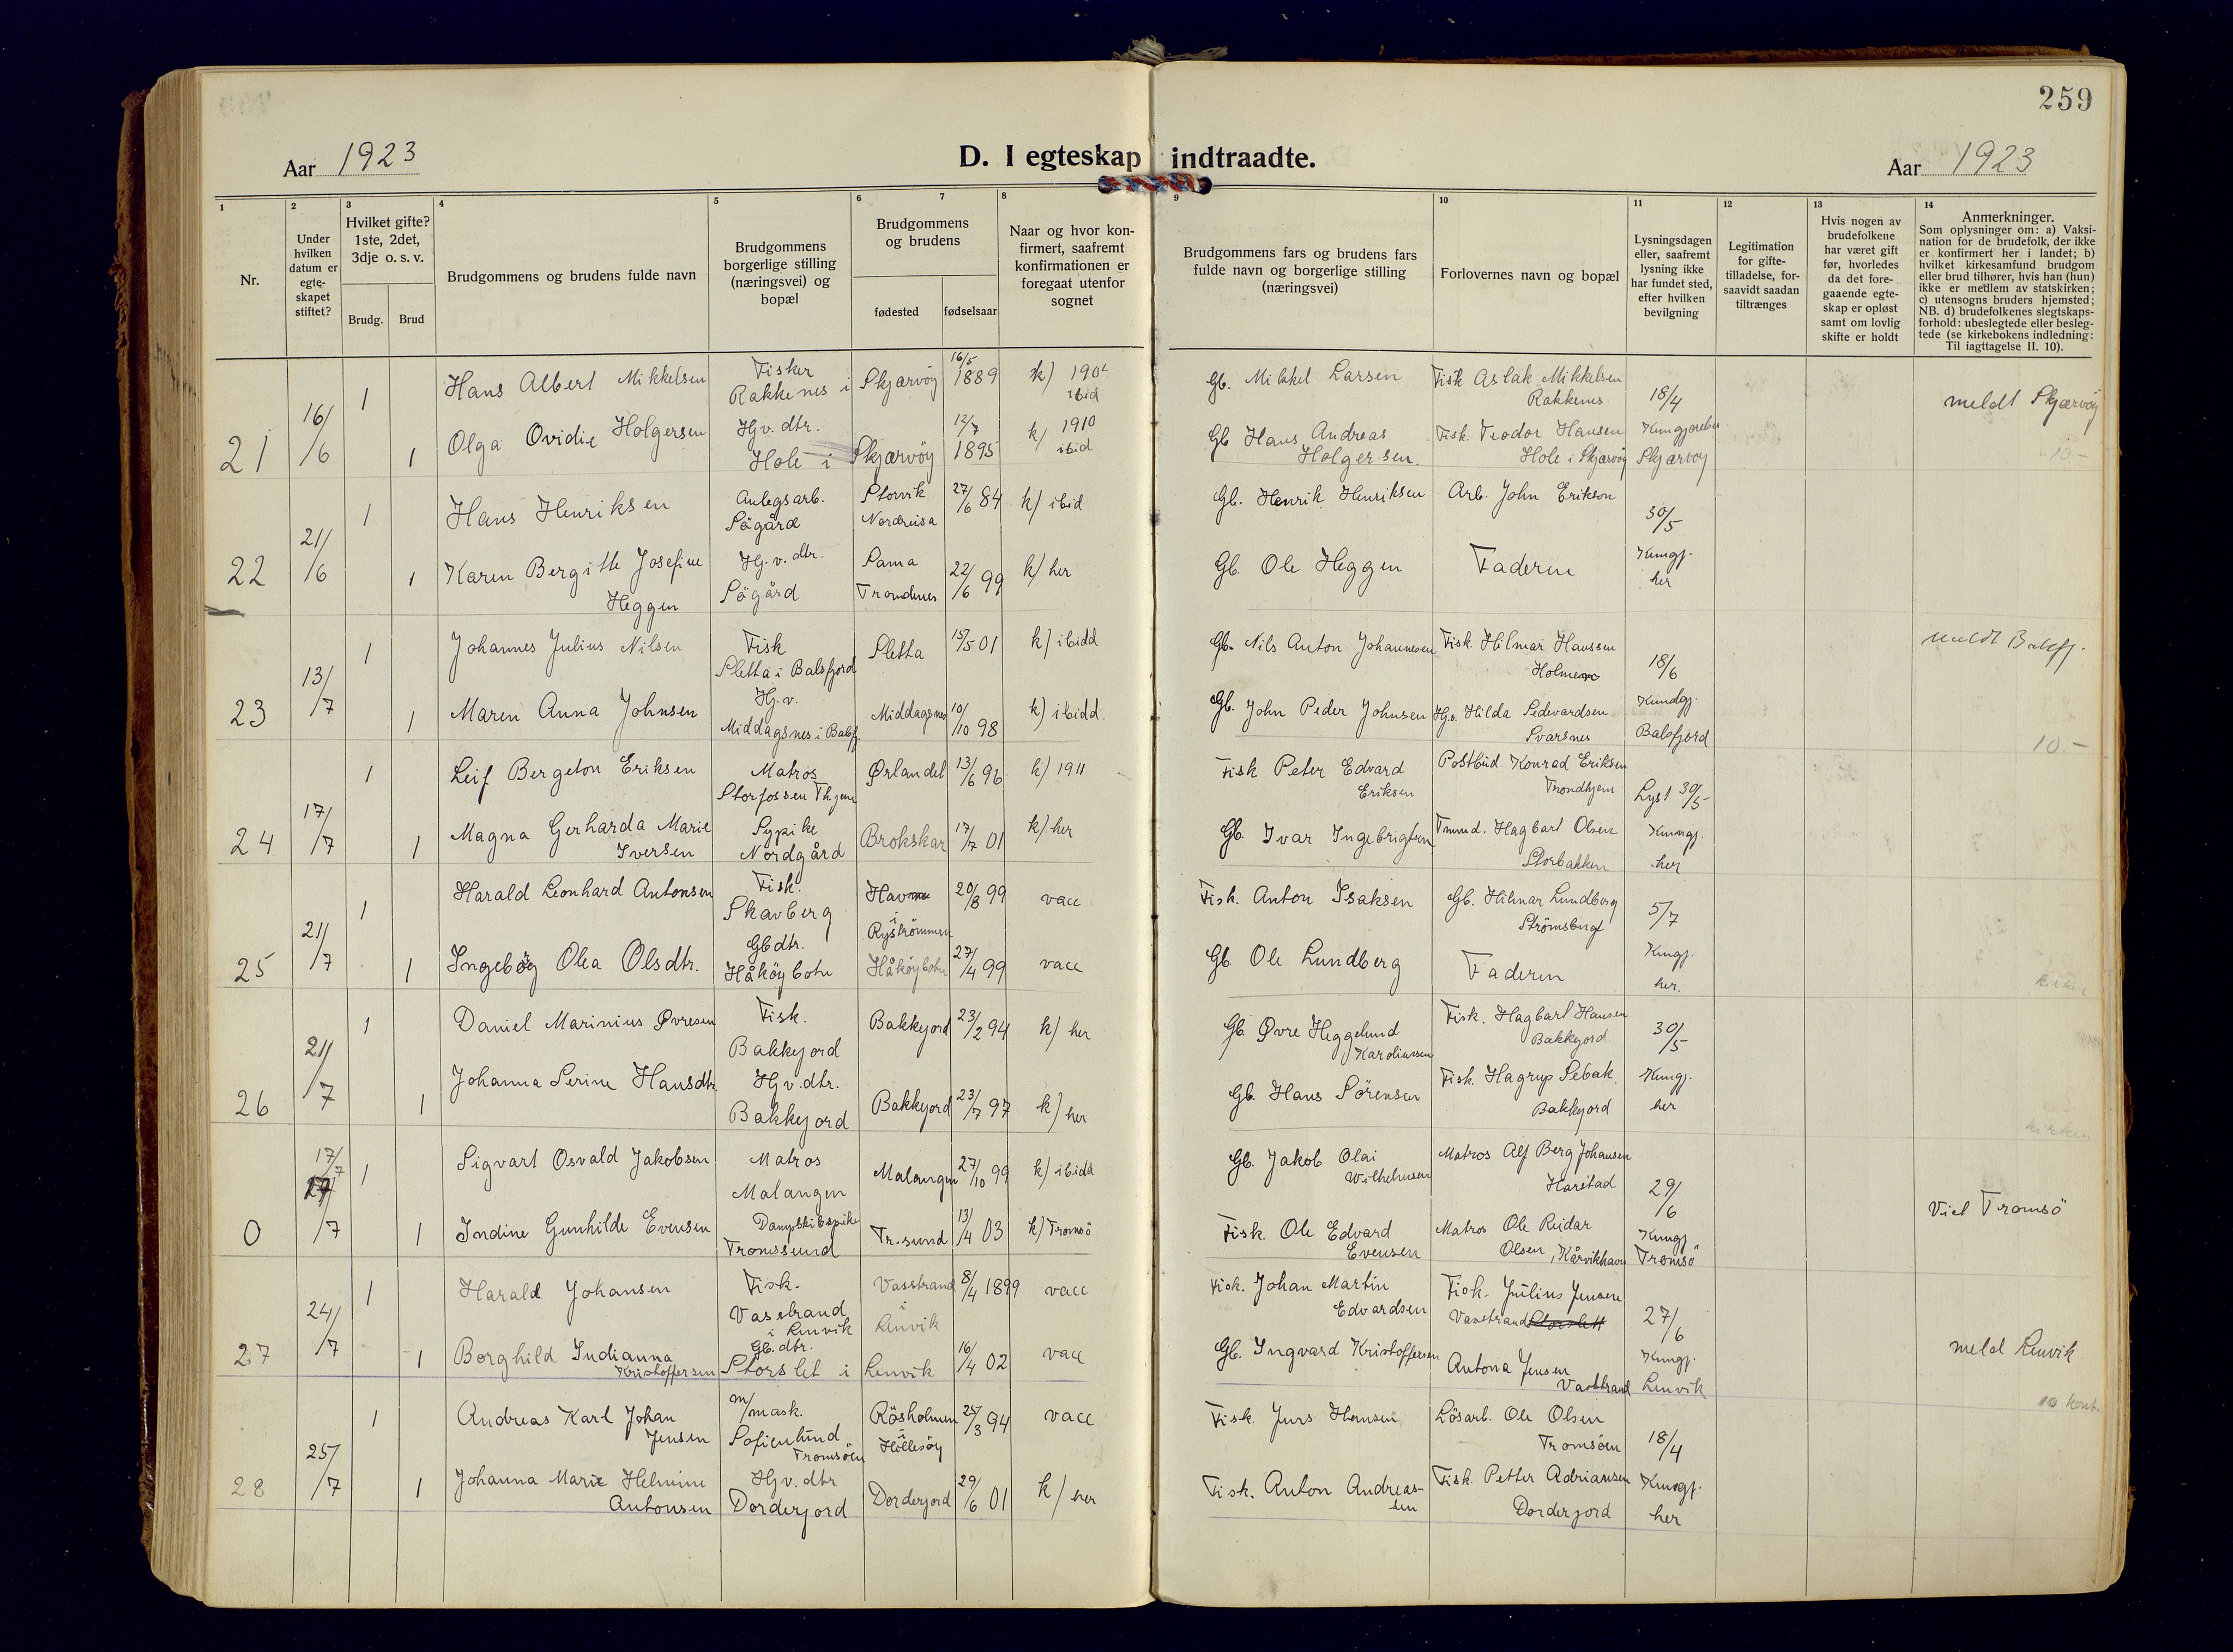 259
D. I egteskap indtraadte.
Aar 1923
Aar 1923
1
2
3
4
5
6
7
8
9
10
11
12
13
14
Nr.
Under hvilken datum er egte-skapet stiftet?
Hvilket gifte? 1ste, 2det, 3dje o. s. v.
Brudg.
Brud
Brudgommens og brudens fulde navn
Brudgommens borgerlige stilling (næringsvei) og bopæl
Brudgommens og brudens
fødested
fødselsaar
Naar og hvor kon-firmert, saafremt konfirmationen er foregaat utenfor sognet
Brudgommens fars og brudens fars fulde navn og borgerlige stilling (næringsvei)
Forlovernes navn og bopæl
Lysningsdagen eller, saafremt lysning ikke har fundet sted, efter hvilken bevilgning
Legitimation for gifte-tilladelse, for-saavidt saadan tiltrænges
Hvis nogen av brudefolkene har været gift før, hvorledes da det fore-gaaende egte-skap er opløst samt om lovlig skifte er holdt
Anmerkninger.
Som oplysninger om: a) Vaksi-nation for de brudefolk, der ikke er konfirmert her i landet; b) hvilket kirkesamfund brudgom eller brud tilhører, hvis han (hun) ikke er medlem av statskirken; c) utensogns bruders hjemsted; NB. d) brudefolkenes slegtskaps-forhold: ubeslegtede eller besleg-tede (se kirkebokens indledning: Til iagttagelse II. 10).
21 16/6 1 Hans Albert Mikkelsen Fisker Rakkenes i Skjærvöy 16/5 1889 k) 1904 ibid Gb. Mikkel Larsen Fisk Aslak Mikkelsen Rakkenes 18/4 meldt Skjærvöy
1 Olga Ovidie Holgersen Hj.v. dtr. Hole i Skjærvöy 12/7 1895 k) 1910 ibid Gb Hans Andreas Holgersen. Fisk. Teodor Hansen Hole i Skjærvöy Skjærvöy
22 21/6 1 Hans Henriksen Anlegsarb. Sögård Storvik Nordreisa 27/6 84 k) ibid Gb. Henrik Henriksen Arb. John Erikson 30/5
1 Karen Bergitte Josefine Heggen Hj.v. dtr. Sögård Sama Trondenes 22/6 99 k) her Gb. Ole Heggen Faderen Kungj. her
23 13/7 1 Johannes Julius Nilsen Fisk Sletta i Balsfjord Sletta 15/5 01 k) ibidd Gb. Nils Anton Johannesen Fisk. Hilmar Hanssen 18/6 meldt Balsfj.
1 Maren Anna Johnsen Hj.v. Middagsnes i Balsfj. Middagsnes 10/10 98 k) ibidd. Gb. John Peder Johnsen Hj.v. Hilda Sedevardsen Svarsnes Kundgj. Balsfjord 10.-
24 17/7 1 Leif Bergeton Eriksen Matros Storfossen Thjem Ørlandet 13/6 96 k) 1911 Fisk Peter Edvard Eriksen Postbud Konrad Eriksen Trondhjem Lyst 30/5
1 Magna Gerharda Marie Iversen Sypike Nordgård Brokskar 17/7 01 k) her Gb. Ivar Ingebrigtsen Hagbart Olsen Storbakken Kungj. her
25 21/7 1 Harald Leonhard Antonsen Fisk. Skavberg i Ryströmmen 20/8 99 vacc Fisk. Anton Isaksen Gb. Hilmar Lundberg 5/7
1 Ingeborg Olea Olsdtr. Gbdtr. Håköybotn Håköybotn 27/4 99 vacc Gb. Ole Lundberg Faderen Kungj. her.
26 21/7 1 Daniel Marinius Øvresen Fisk. Bakkejord Bakkejord 23/2 94 k) her Gb. Øvre Heggelund Karoliussen Fisk. Hagbart Hansen Bakkejord 30/5
1 Johanna Serine Hansdtr Hjv.dtr. Bakkejord Bakkejord 23/7 97 k) her Gb. Hans Sörensen Fisk. Hagrup Sebak. Bakkejord Kungj. her
0 17/7 1 Sigvart Osvald Jakobsen Matros Malangen Malangen 27/10 99 k) ibidd Gb. Jakob Olai Wilhelmsen Matros Alf Berg Johansen Harstad 29/6
1 Indine Gunhilde Evensen Dampskibspike Tromssund Tr.sund 13/4 03 k) Tromsö Fisk. Ole Edvard Evensen Matros Ole Reidar Olsen, Kårvikhavn Kungj Tromsö Viet Tromsö
27 24/7 1 Harald Johansen Fisk. Vasstrand i Lenvik Vasstrand i Lenvik 8/4 1899 vacc Fisk. Johan Martin Edvardsen Fisk. Julius Jensen Vasstrand 27/6
1 Borghild Indianna Kristoffersen Gb. dtr. Storslet i Lenvik 16/4 02 vacc Gb. Ingvard Kristoffersen Antona Jensen Vasstrand Kungj. Lenvik meld Lenvik
28 25/7 1 Andreas Karl Johan Jensen m/mask. Sofienlund Tromsöen Rösholmen i Hillesöy 25/3 94 vacc Fisk. Jens Hansen Lösarb. Ole Olsen Tromsöen 18/4 10 kont.
1 Johanna Marie Helmine Antonsen Hjv. dtr Dorderjord Dorderjord 29/6 01 k) her Fisk. Anton Andreas-sen Fisk. Petter Adriansen Dorderjord Kungj. her